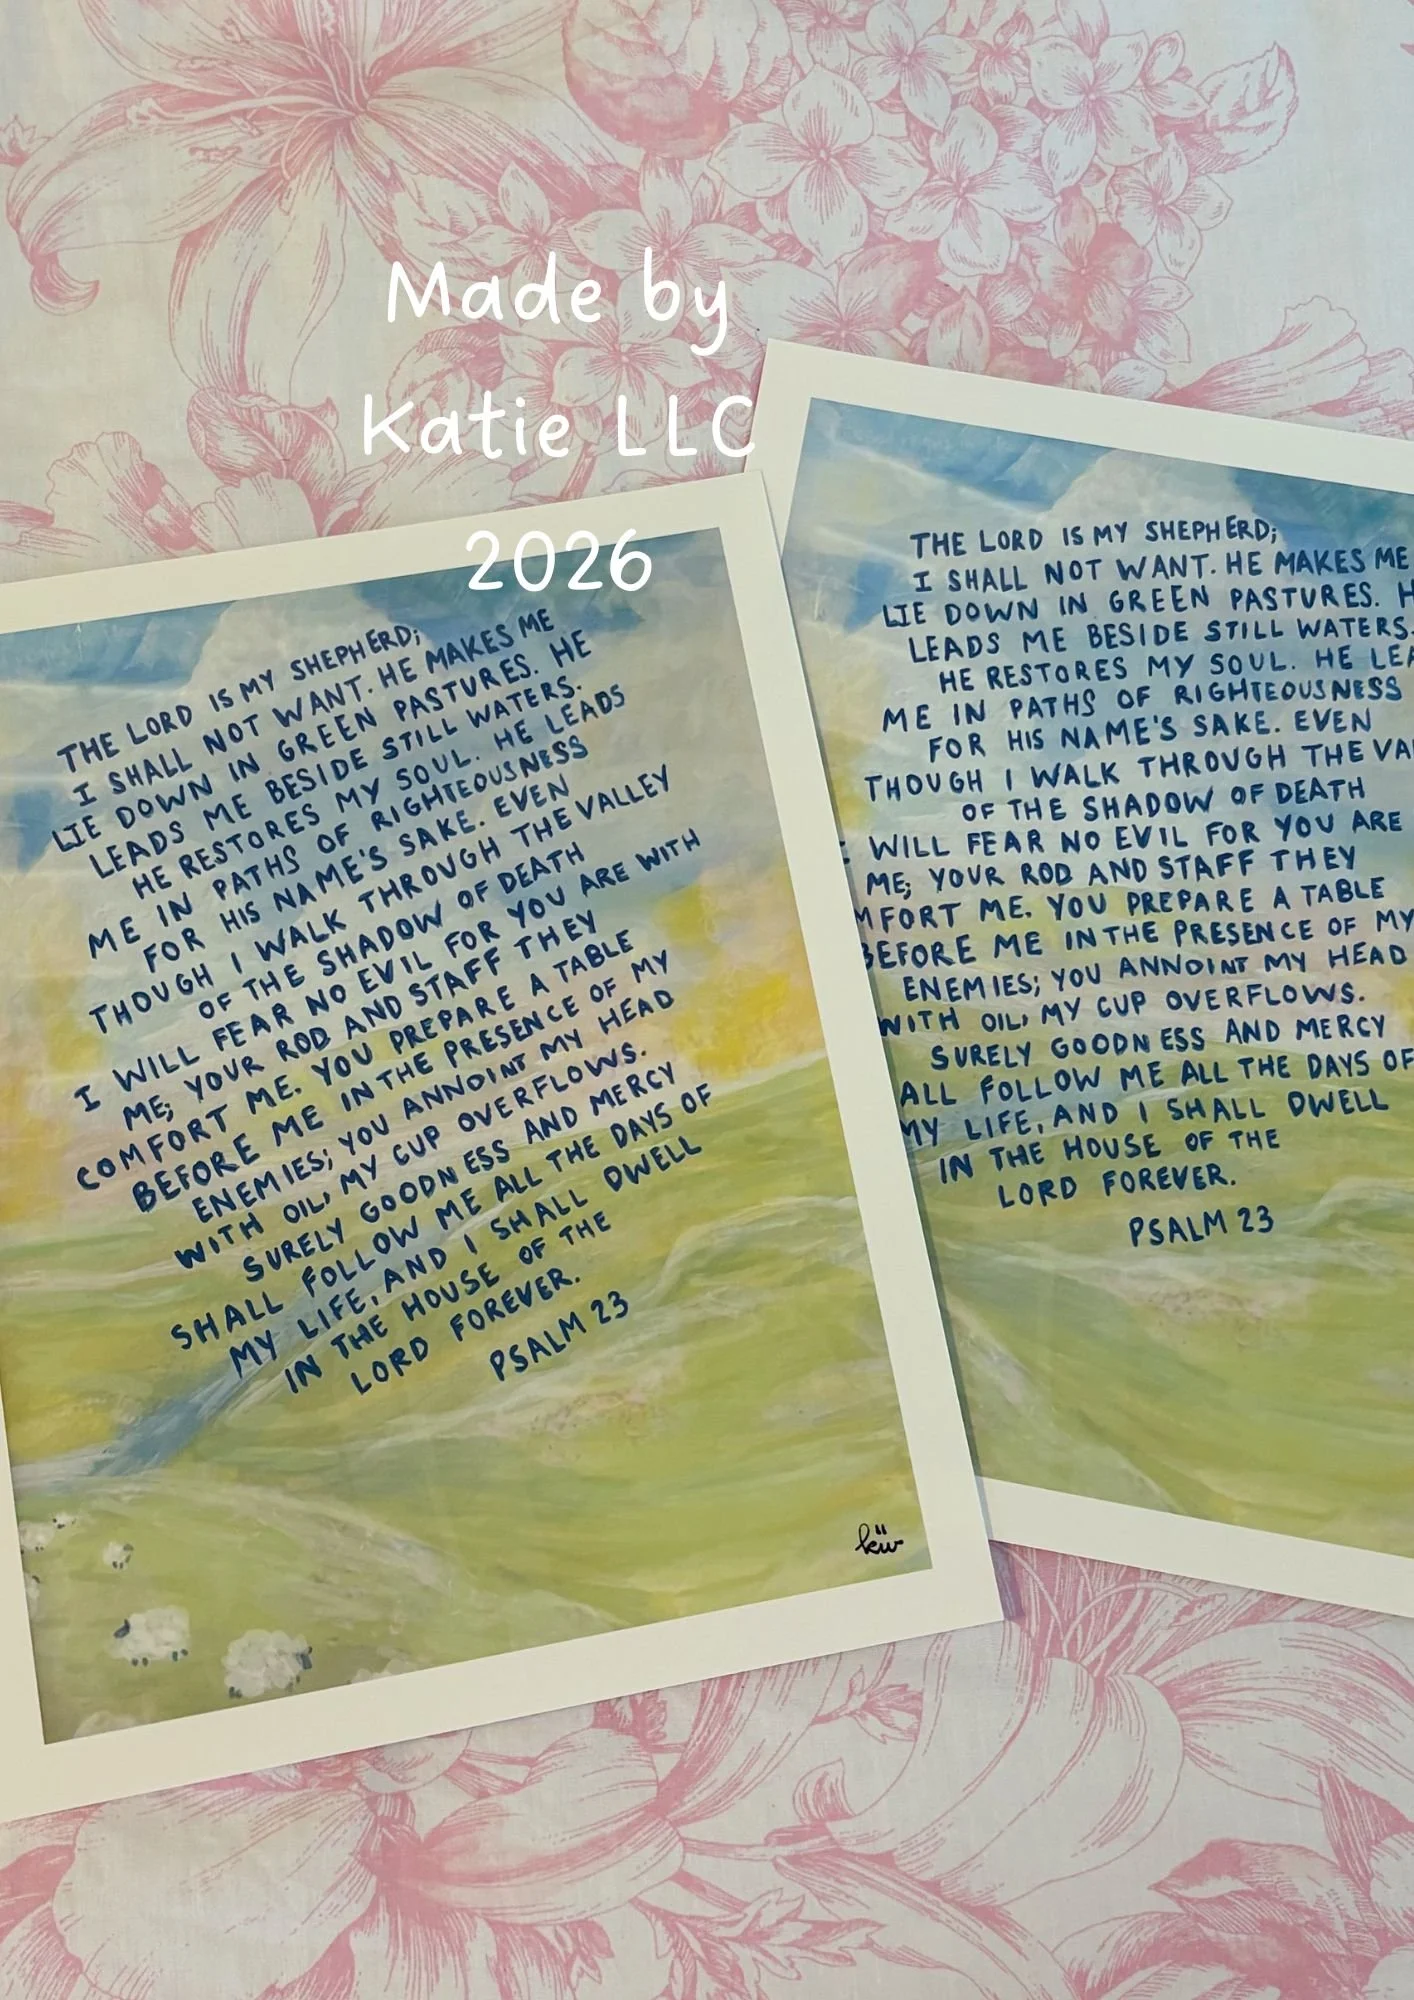 Made by
Katie LLC
2026
THE LORD IS MY SHEPHERD;
I SHALL NOT WANT. HE MAKES ME
LIE DOWN IN GREEN PASTURES. HE
LEADS ME BESIDE STILL WATERS.
HE RESTORES MY SOUL. HE LEADS
ME IN PATHS OF RIGHTEOUSNESS
FOR HIS NAME'S SAKE. EVEN
THOUGH I WALK THROUGH THE VALLEY
OF THE SHADOW OF DEATH
I WILL FEAR NO EVIL FOR YOU ARE WITH
ME; YOUR ROD AND STAFF THEY
COMFORT ME. YOU PREPARE A TABLE
BEFORE ME IN THE PRESENCE OF MY
ENEMIES; YOU ANNOINT MY HEAD
WITH OIL, MY CUP OVERFLOWS.
SURELY GOODNESS AND MERCY
SHALL FOLLOW ME ALL THE DAYS OF
MY LIFE, AND I SHALL DWELL
IN THE HOUSE OF THE
LORD FOREVER.
PSALM 23
THE LORD IS MY SHEPHERD;
I SHALL NOT WANT. HE MAKES ME
LIE DOWN IN GREEN PASTURES. H
LEADS ME BESIDE STILL WATERS.
HE RESTORES MY SOUL. HE LEA
ME IN PATHS OF RIGHTEOUSNESS
FOR HIS NAME'S SAKE. EVEN
THOUGH I WALK THROUGH THE VA
OF THE SHADOW OF DEATH
WILL FEAR NO EVIL FOR YOU ARE
ME; YOUR ROD AND STAFF THEY
MFORT ME. YOU PREPARE A TABLE
BEFORE ME IN THE PRESENCE OF MY
ENEMIES; YOU ANNOINT MY HEAD
WITH OIL, MY CUP OVERFLOWS.
SURELY GOODNESS AND MERCY
ALL FOLLOW ME ALL THE DAYS OF
MY LIFE, AND I SHALL DWELL
IN THE HOUSE OF THE
LORD FOREVER.
PSALM 23